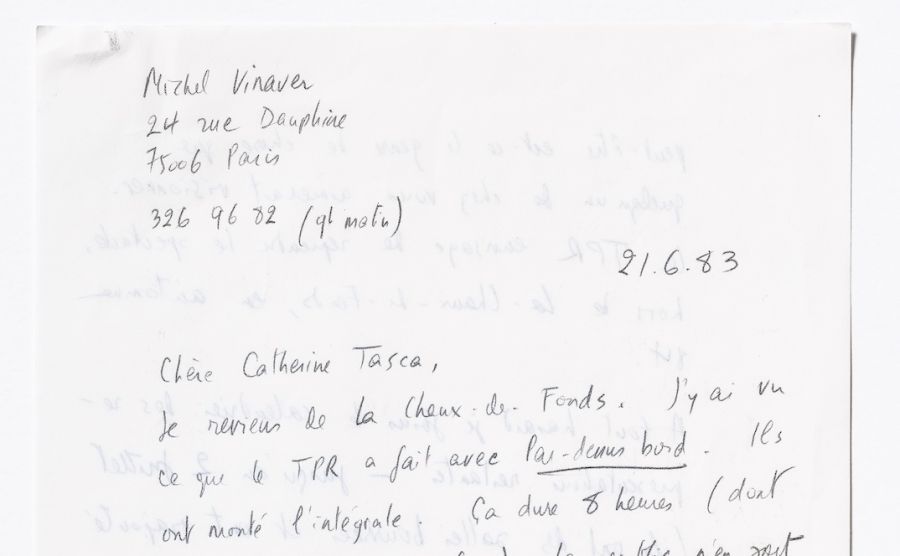 Michel Vinaver
24 rue Dauphine
75006 Paris
326 96 82 (qd matin)
21.6.83
Chère Catherine Tasca,
Je reviens de La Chaux-de-Fonds. J'y ai vu
ce que le TPR a fait avec Par-dessus bord. Ils
ont monté l'intégrale. Ça dure 8 heures (dont
le public n'en sort